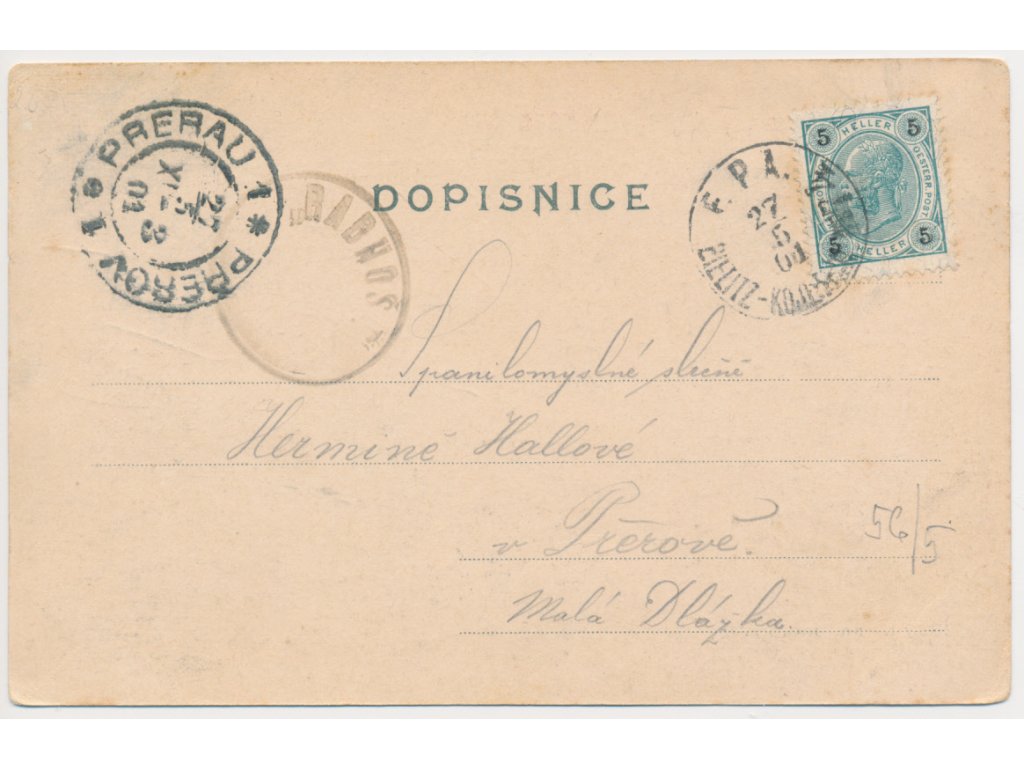 PRERAU 1 * PŘEROV 1 *
27 5 01
XI - 3
"RADHOŠ
DOPISNICE
F. P. A.
27 5 01
BIELITZ-KOJETEIN
5 HELLER 5
OESTERR. POST
5 HELLER 5
Spanilomyslné slečně
Hermině Hallové
v Přerově.
Malá Dlážka.
56/5